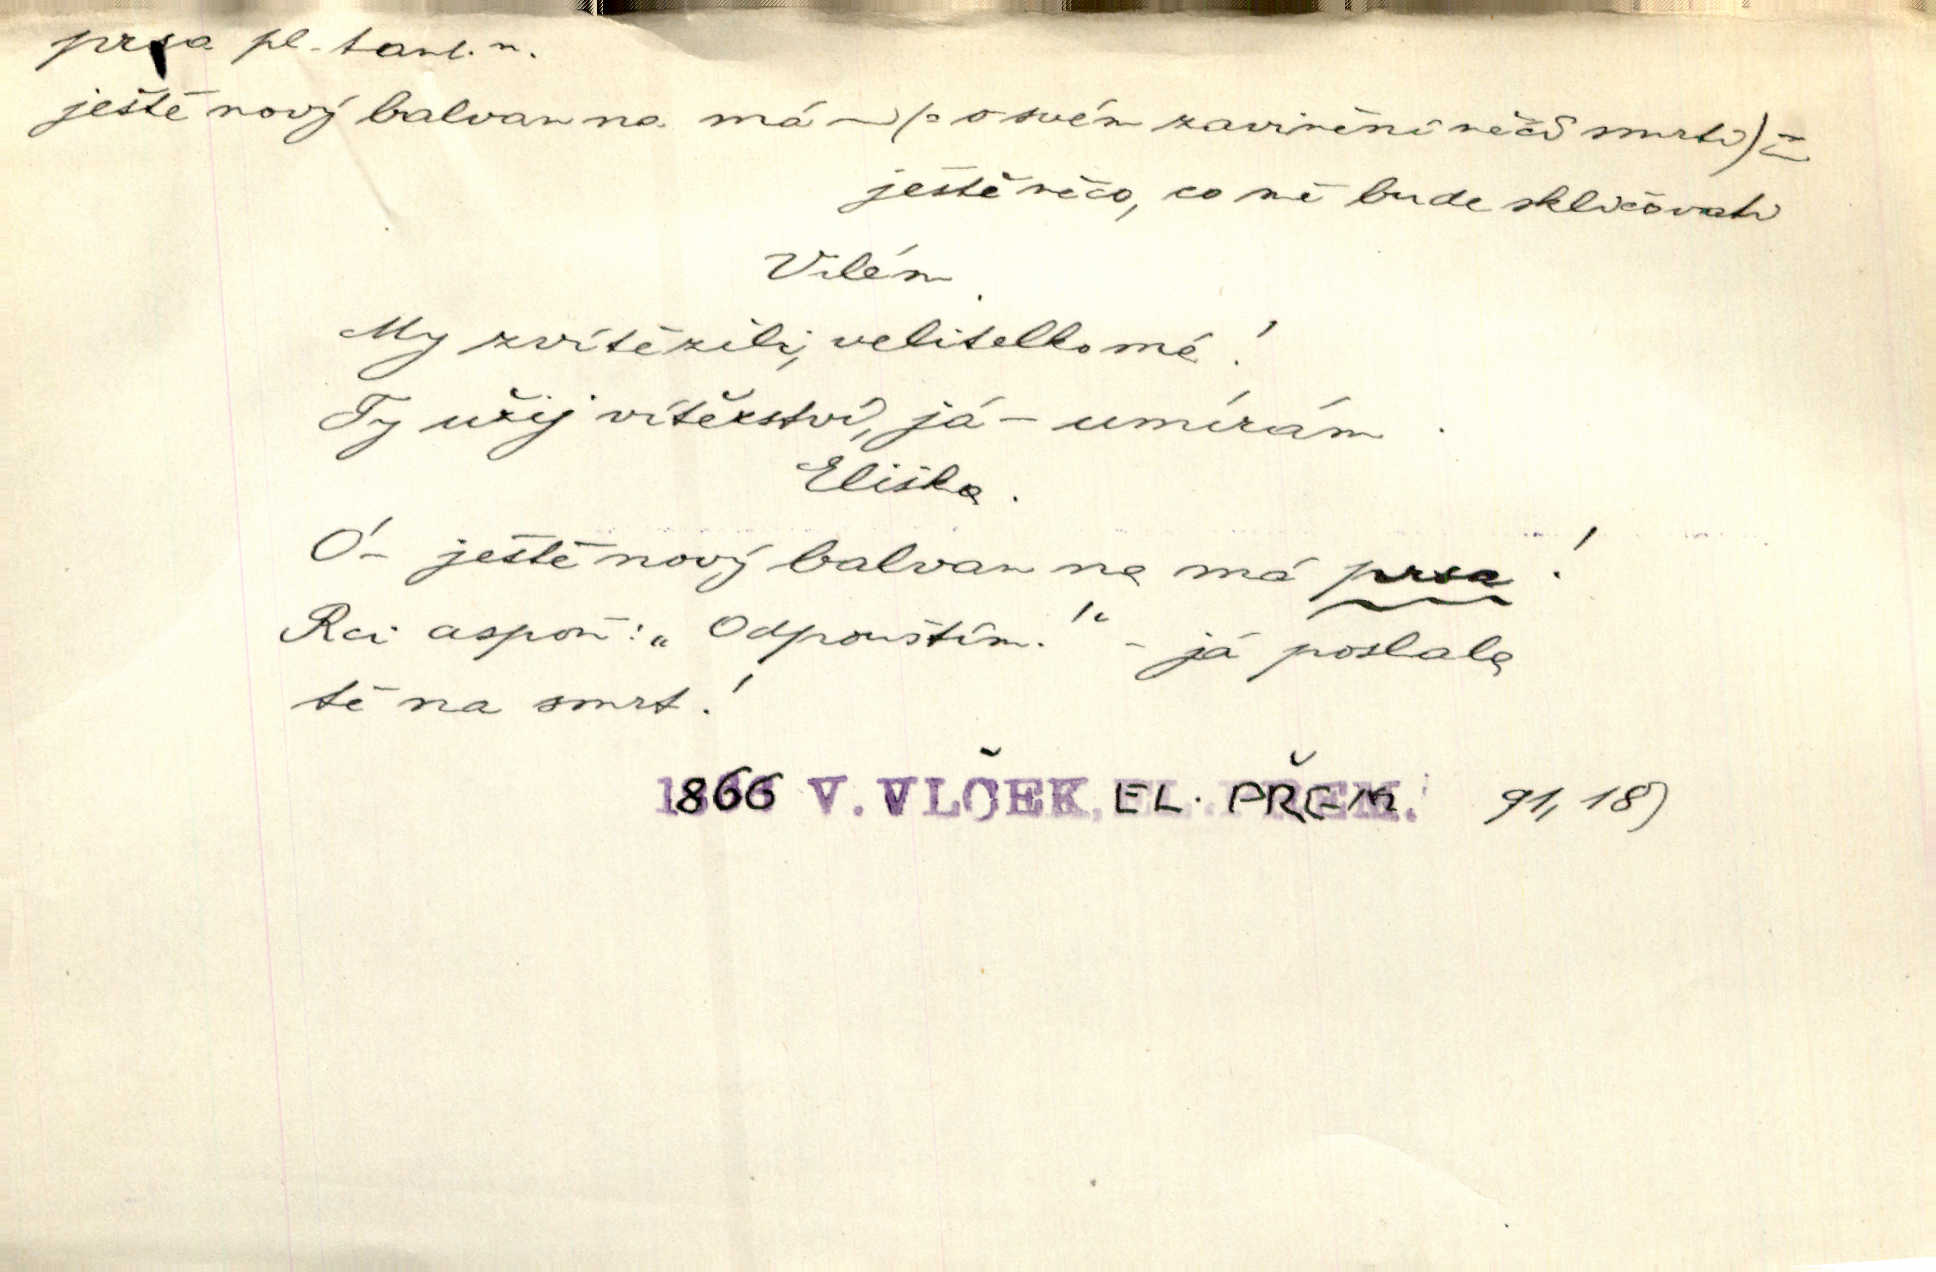 prsa pl. tant. n.
ještě nový balvan na má ~ (: o svém zavinění něčí smrti) =
ještě něco, co mě bude skličovati
Vilém.
My zvítězili, velitelko má!
Ty užij vítězství, já – umírám.
Eliška.
Ó – ještě nový balvan na má prsa!
Rci aspoň: „Odpouštím!“ – já poslala
tě na smrt!
1866 V. VLČEK, EL. PŘEM. 91, 18)